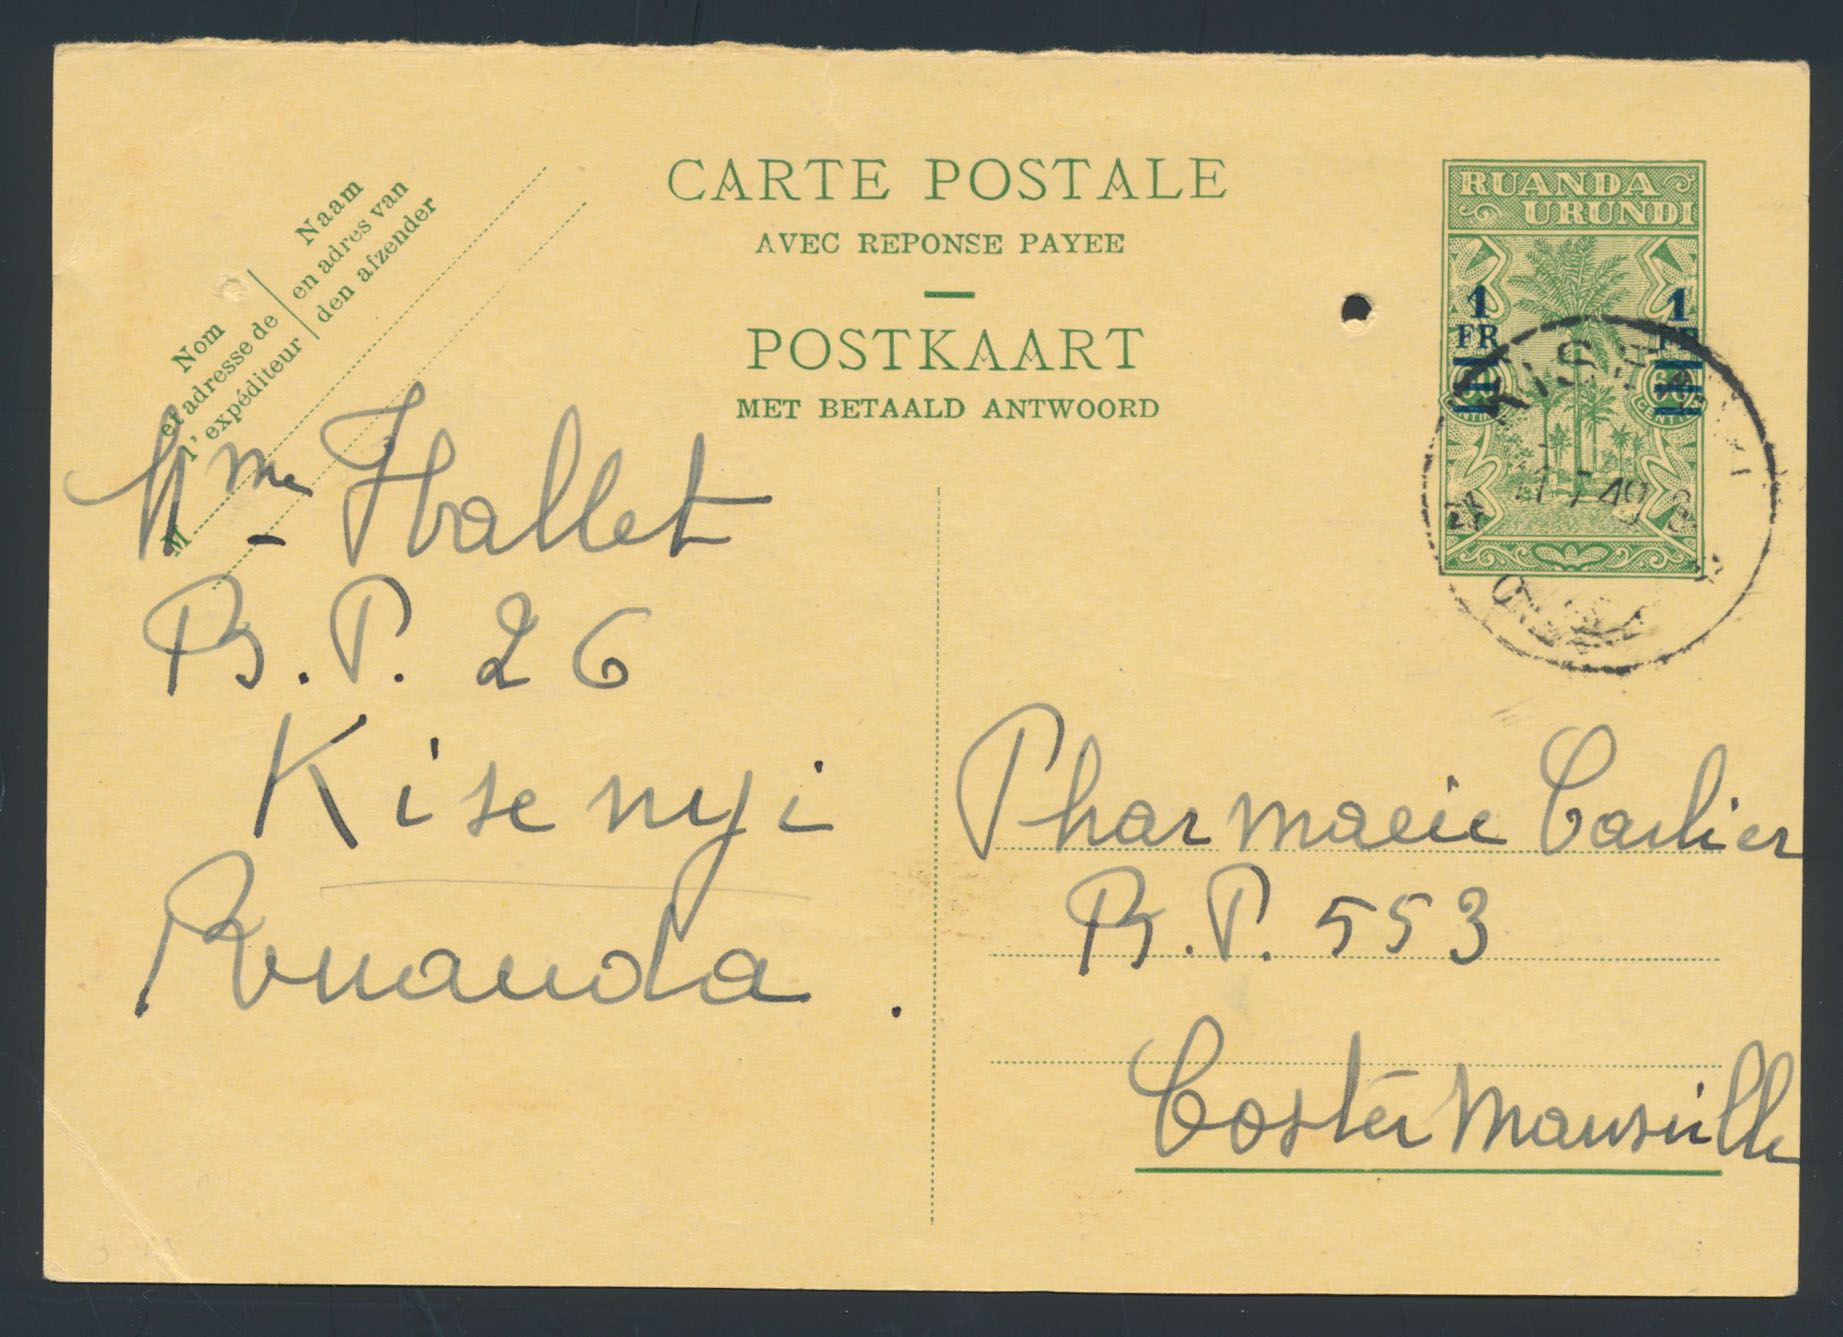 CARTE POSTALE
AVEC REPONSE PAYEE
POSTKAART
MET BETAALD ANTWOORD
Nom
et adresse de
l'expéditeur
Naam
en adres van
den afzender
M
RUANDA
URUNDI
1 1
FR
60
Mme Hallet
B.P. 26
Kisenyi
Ruanda.
Pharmacie Carlier
B.P. 553
Costermansville